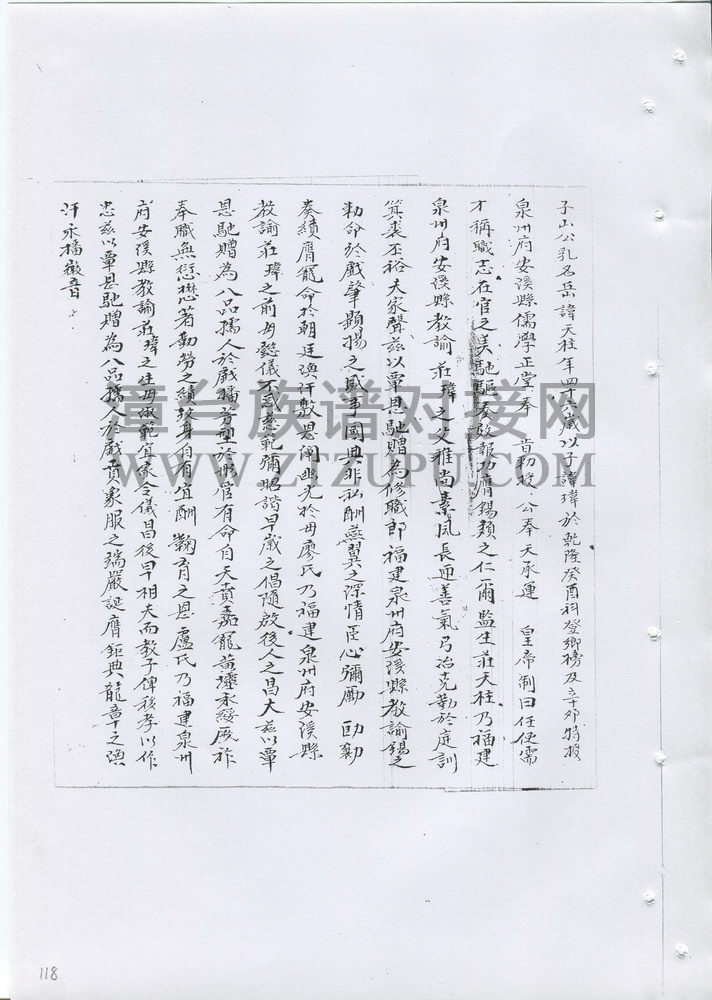 子山公乳名岳諱天柱年四十六歲以子諱瑋於乾隆癸酉科登鄉榜及辛卯特授
泉州府安溪縣儒學正堂奉 旨勅授公奉天承運 皇帝制曰任使需
才稱職志在官之美馳驅奏效報功膺錫類之仁爾監生莊天柱乃福建
泉州府安溪縣教諭莊瑋之父雅尚素風長迎善氣弓冶克勤於庭訓
箕裘丕裕夫家聲茲以覃恩馳贈為修職郎福建泉州府安溪縣教諭錫之
勅命於戲肇顯揚之盛事國典非私酬燕翼之深情臣心彌勵 勖勷
奏績膺寵命於朝廷渙汗敷恩闡幽光於母廖氏乃福建泉州府安溪縣
教諭莊瑋之前母懿儀不忒慈範彌昭諧早歲之倡隨啟後人之昌大茲以覃
恩馳贈為八品孺人於戲播芳型於彤管有命自天賁嘉寵黃壚永綏厥祚
奉職無愆懋著勤勞之績致身有自宜酬鞠育之恩盧氏乃福建泉州
府安溪縣教諭莊瑋之生母淑範宜家令儀昌後早相夫而教子俾移孝以作
忠茲以覃恩馳贈為八品孺人於戲賁象服之端嚴誕膺鉅典龍章之渙
汗永播徽音
章台族谱对接网
WWW.ZTZUPU.COM
118